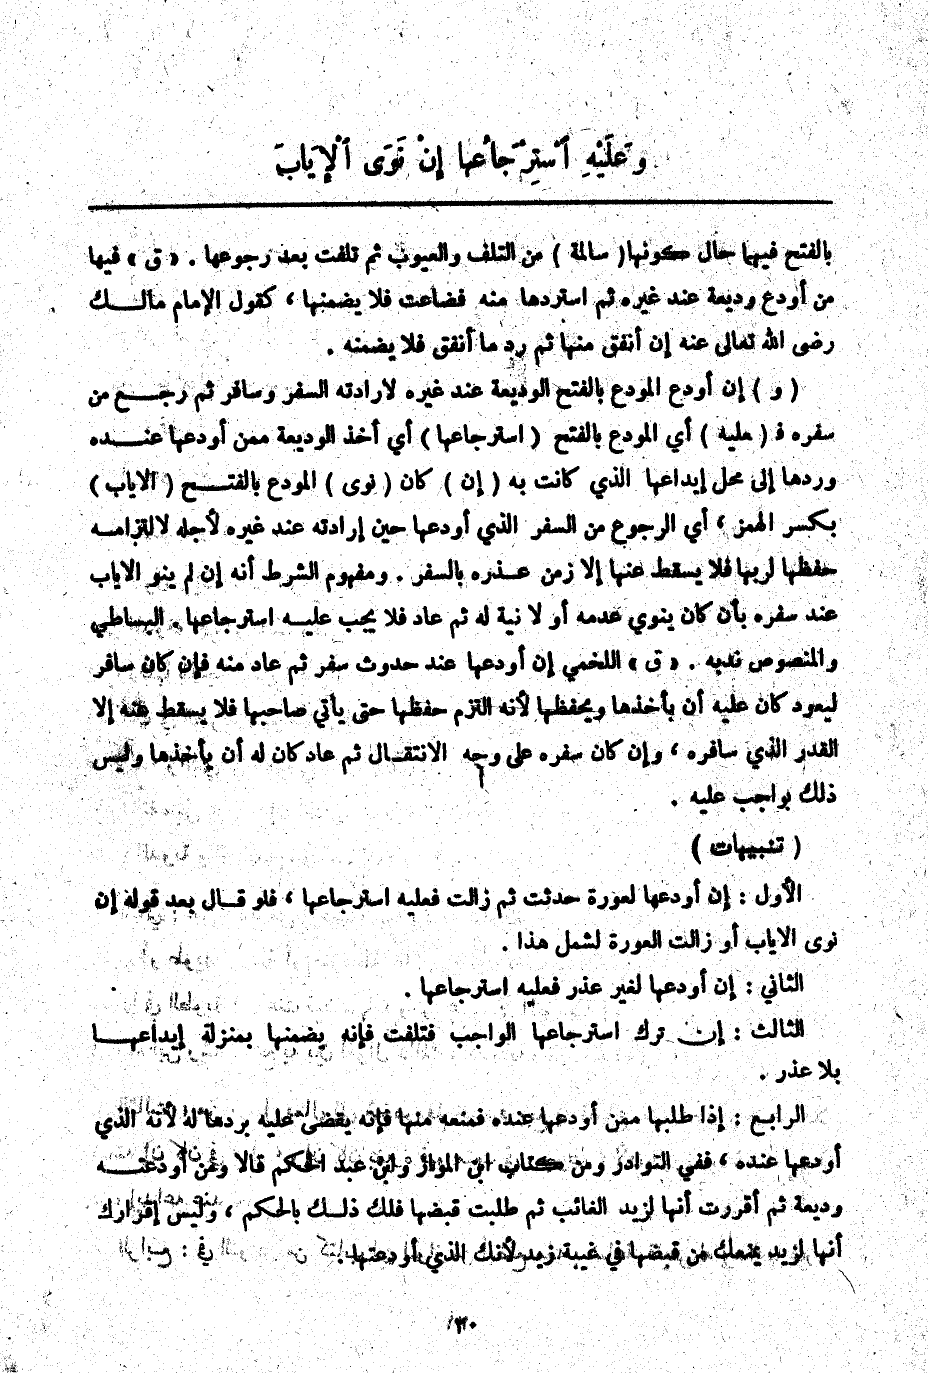 وَعَلَيْهِ ٱسْتِرْجَاعُها إِنْ نَوَى ٱلْإِيَابَ
بالفتح فيهما حال كونها ( سالمة ) من التلف والعيوب ثم تلفت بعد رجوعها . « ق » فيها
من أودع وديعة عند غيره ثم استردها منه فضاعت فلا يضمنها ، كقول الإمام مالــك
رضى الله تعالى عنه إن أنفق منها ثم رد ما أنفق فلا يضمنه .
( و ) إن أودع المودع بالفتح الوديعة عند غيره لارادته السفر وسافر ثم رجــع من
سفره فـ ( عليه ) أي المودع بالفتح ( استرجاعها ) أي أخذ الوديعة ممن أودعها عنــده
وردها إلى محل إيداعها الذي كانت به ( إن ) كان ( نوى ) المودع بالفتــح ( الاياب )
بكسر الهمز ، أي الرجوع من السفر الذي أودعها حين إرادته عند غيره لأجله لالتزامــه
حفظها لربها فلا يسقط عنها إلا زمن عــذره بالسفر . ومفهوم الشرط أنه إن لم ينو الاياب
عند سفره بأن كان ينوي عدمه أو لا نية له ثم عاد فلا يجب عليــه استرجاعها . البساطي
والمنصوص ندبه . « ق » اللخمي إن أودعها عند حدوث سفر ثم عاد منه فإن كان سافر
ليعود كان عليه أن يأخذها ويحفظها لأنه التزم حفظها حتى يأتي صاحبها فلا يسقط عنه إلا
القدر الذي سافره ، وإن كان سفره على وجه الانتقــال ثم عاد كان له أن يأخذها وليس
ذلك بواجب عليه .
( تنبيهات )
الأول : إن أودعها لعورة حدثت ثم زالت فعليه استرجاعها ، فلو قــال بعد قوله إن
نوى الاياب أو زالت العورة لشمل هذا .
الثاني : إن أودعها لغير عذر فعليه استرجاعها .
الثالث : إن ترك استرجاعها الواجب فتلفت فإنه يضمنها بمنزلة إيداعهــا
بلا عذر .
الرابع : إذا طلبها ممن أودعها عنده فمنعه منها فإنه يقضى عليه بردها له لأنه الذي
أودعها عنده ، ففي النوادر ومن كتاب ابن المواز وابن عبد الحكم قالا ومن أودعتــه
وديعة ثم أقررت أنها لزيد الغائب ثم طلبت قبضها فلك ذلــك بالحكم ، وليس إقرارك
أنها لزيد يمنعك من قبضها في غيبة زيد لأنك الذي أودعتها .